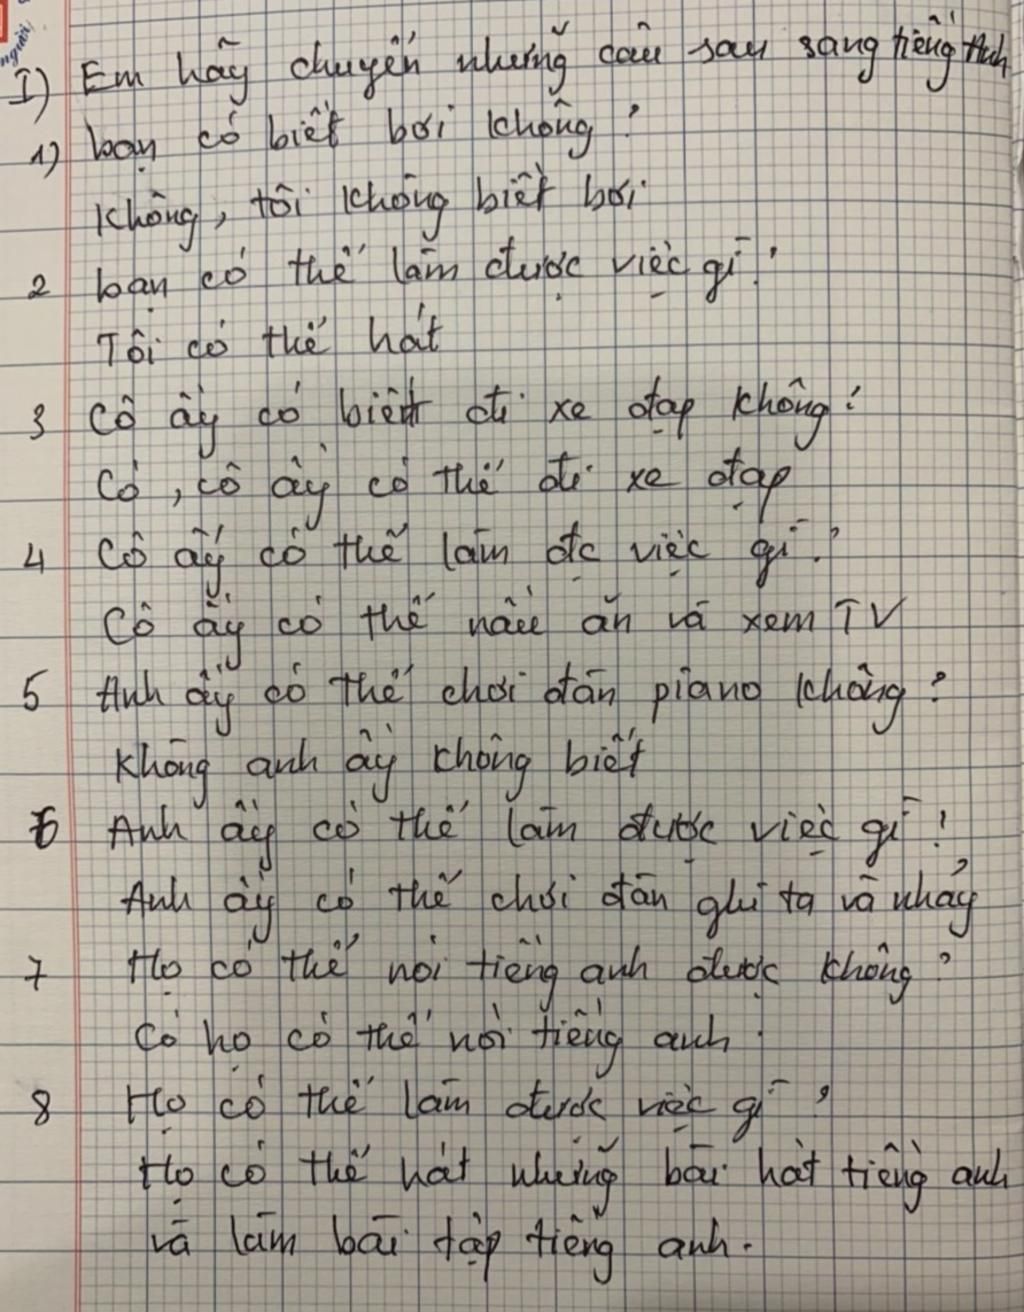 người
I) Em hãy chuyển những câu sau sang tiếng Anh
1) bạn có biết bơi không?
Không, tôi không biết bơi
2 bạn có thể làm được việc gì?
Tôi có thể hát
3 Cô ấy có biết đi xe đạp không?
Có, cô ấy có thể đi xe đạp
4 Cô ấy có thể làm đc việc gì?
Cô ấy có thể nấu ăn và xem TV
5 Anh ấy có thể chơi đàn piano không?
Không anh ấy không biết
6 Anh ấy có thể làm được việc gì?
Anh ấy có thể chơi đàn ghi ta và nhảy
7 Họ có thể nói tiếng anh được không?
Có họ có thể nói tiếng anh.
8 Họ có thể làm được việc gì?
Họ có thể hát những bài hát tiếng anh
và làm bài tập tiếng anh.